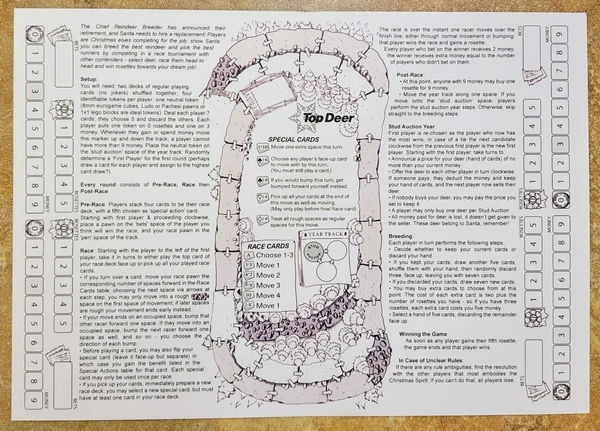 The Chief Reindeer Breeder has announced their
retirement, and Santa needs to hire a replacement! Players
are Christmas elves competing for the job; show Santa
you can breed the best reindeer and pick the best
runners by competing in a race tournament with
other contenders - select deer, race them head to
head and win rosettes towards your dream job!
Setup:
You will need: two decks of regular playing
cards (no jokers) shuffled together; four
identifiable tokens per player; one neutral token
(8mm eurogame cubes, Ludo or Pachesi pawns or
1x1 lego blocks are ideal tokens). Deal each player 7
cards; they choose 5 and discard the others. Each
player puts one token on 0 rosettes and one on 3
money. Whenever they gain or spend money move
this marker up and down the track; a player cannot
have more than 9 money. Place the neutral token on
the 'stud auction' space of the year track. Randomly
determine a 'First Player' for the first round (perhaps
draw a card for each player and assign to the highest
card draw?).
Every round consists of Pre-Race, Race then
Post-Race.
Pre-Race: Players stack four cards to be their race
deck, with a fifth chosen as 'special action' card.
Starting with first player & proceeding clockwise,
place a pawn in the 'bets' space of the player you
think will win the race, and your race pawn in the
'pen' start space of the track.
Race: Starting with the player to the left of the first
player, take it in turns to either play the top card of
your race deck face up or pick up all your played race
cards.
• If you turn over a card, move your race pawn the
corresponding number of spaces forward in the Race
Cards table, choosing the next space via arrows at
each step; you may only move into a rough
space on the first space of movement; if later spaces
are rough your movement ends early instead.
• If your move ends on an occupied space, bump that
other racer forward one space. If they move into an
occupied space, bump the next racer forward one
space as well, and so on - you choose the
direction of each bump.
• Before playing a card, you may also flip your
special card (leave it face-up but separate) in
which case you gain the benefit listed in the
Special Actions table for that card. Each special
card may only be used once per race.
• If you pick up your cards, immediately prepare a new
race deck; you may select a new special card, but must
have at least one card in your race deck.
Top Deer
SPECIAL CARDS
Move one extra space this turn.
Choose any player's face-up card
to move with by this turn.
(You must still play a card.)
If you would bump this turn, get
bumped forward yourself instead.
Pick up all your cards at the end of
this move as well as moving.
(May only play before final face card)
Treat all rough spaces as regular
spaces for this move.
RACE CARDS
Choose 1-3
Move 1
Move 2
Move 3
Move 4
Move 1
YEAR TRACK
The race is over the instant one racer moves over the
finish line, either through normal movement or bumping;
that player wins the race and gains a rosette.
Every player who bet on the winner receives 2 money;
the winner receives extra money equal to the number
of players who didn't bet on them.
Post-Race:
• At this point, anyone with 9 money may buy one
rosette for 9 money.
• Move the year track along one space. If you
move onto the 'stud auction' space, players
perform the stud auction year steps. Otherwise, skip
straight to the breeding steps.
Stud Auction Year
First Player is re-chosen as the player who now has
the most wins, in case of a tie the next candidate
clockwise from the previous first player is the new first
player. Starting with the first player, take turns to:
• Announce a price for your deer (hand of cards) of no
more than your current money.
• Offer the deer to each other player in turn clockwise.
If someone pays, they deduct the money and keep
your hand of cards, and the next player now sells their
deer
• If nobody buys your deer, you may pay the price you
set to keep it
• A player may only buy one deer per Stud Auction.
• All money paid for deer is lost, it doesn't get given to
the seller. These deer belong to Santa, remember!
Breeding
Each player in turn performs the following steps.
• Decide whether to keep your current cards or
discard your hand.
• If you kept your cards, draw another five cards,
shuffle them with your hand, then randomly discard
three, face up, leaving you with seven cards.
• If you discarded your cards, draw seven new cards.
• You may buy extra cards to choose from at this
point. The cost of each card is two plus the
number of rosettes you have - so if you have three
rosettes, each extra card costs five money.
• Select a hand of five cards, discarding the remainder
face up.
Winning the Game
As soon as any player gains their fifth rosette,
the game ends and that player wins.
In Case of Unclear Rules
If there are any rule ambiguities, find the resolution
with the other players that most embodies the
Christmas Spirit. If you can't do that, all players lose.